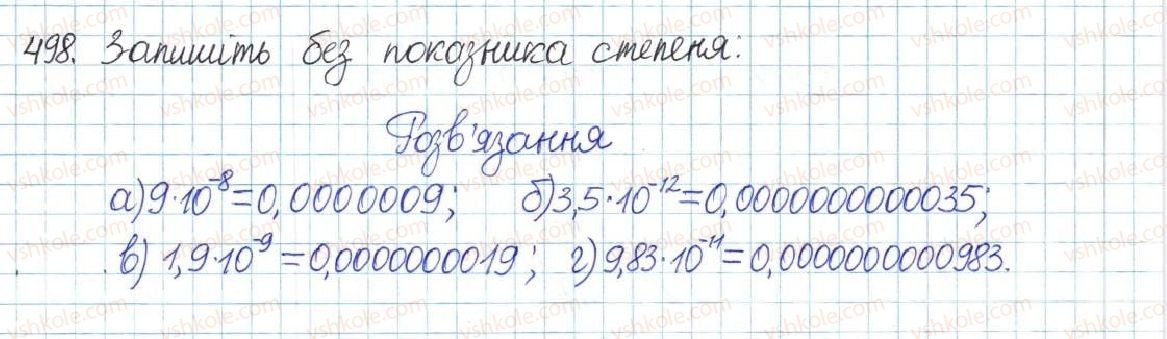 498. Запишіть без показника степеня:
Розв'язання
а) 9·10⁻⁸=0,0000009; б) 3,5·10⁻¹²=0,0000000000035;
в) 1,9·10⁻⁹=0,0000000019; г) 9,83·10⁻¹¹=0,0000000000983.